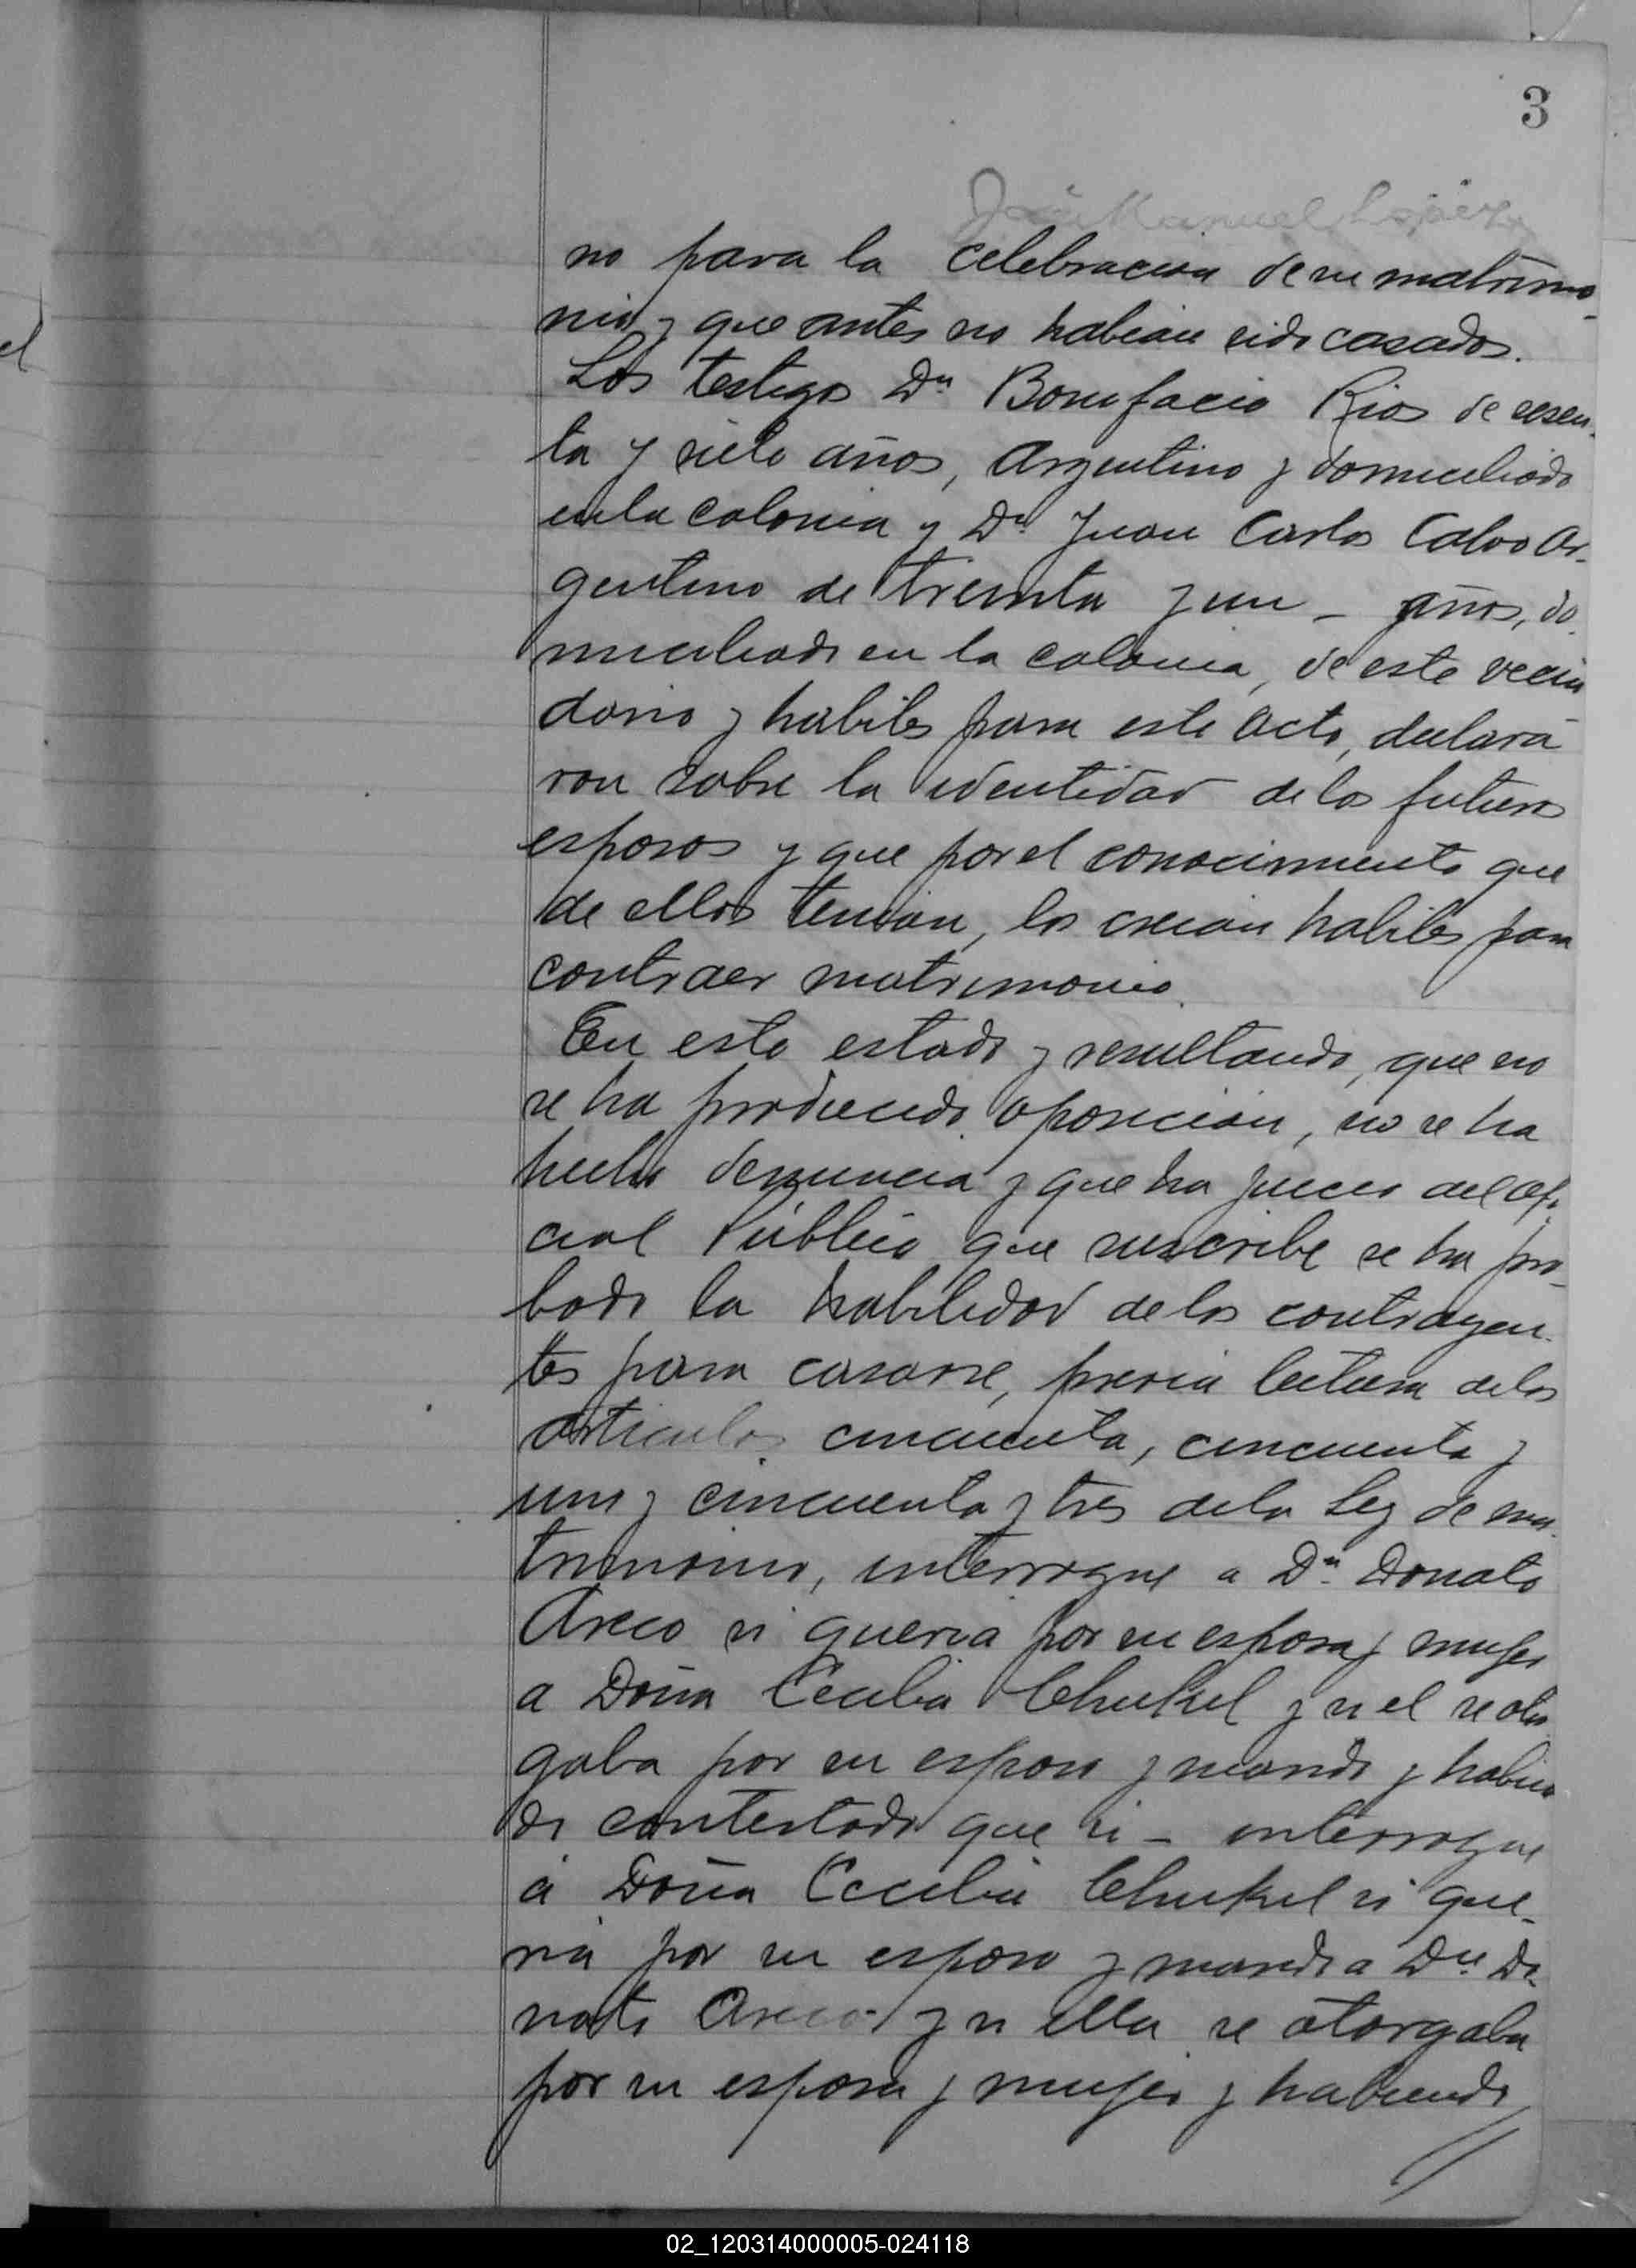 3
José Manuel López
no para la celebracion de su matrimo-
nio y que antes no habian sido casados.
Los testigos Dn Bonifacio Rios de sesen-
ta y siete años, Argentino y domiciliado
en la colonia y Dn Juan Carlos Calvo Ar-
gentino de treinta y un - años, do-
miciliado en la colonia, de este vecin
dario y habiles para este acto, declara-
ron sobre la identidad de los futuros
esposos y que por el conocimiento que
de ellos tenian, los creian habiles para
contraer matrimonio.
En este estado y resultando, que no
se ha producido oposicion, no se ha
hecho denuncia y que ha juicio del Ofi-
cial Público que suscribe se ha pro-
bado la habilidad de los contrayen-
tes para casarse, previa lectura de los
articulos cincuenta, cincuenta y
uno y cincuenta y tres de la Ley de ma-
trimonio, interrogue a Dn Donato
Areco si queria por su esposa y mujer
a Doña Cecilia Chukel y si el se otor
gaba por su esposo y marido y habien
do contestado que si - interrogue
a Doña Cecilia Chukel si que-
ria por su esposo y marido a Dn Do-
nato Areco y si ella se otorgaba
por su esposa y mujer y habiendo
02_120314000005-024118